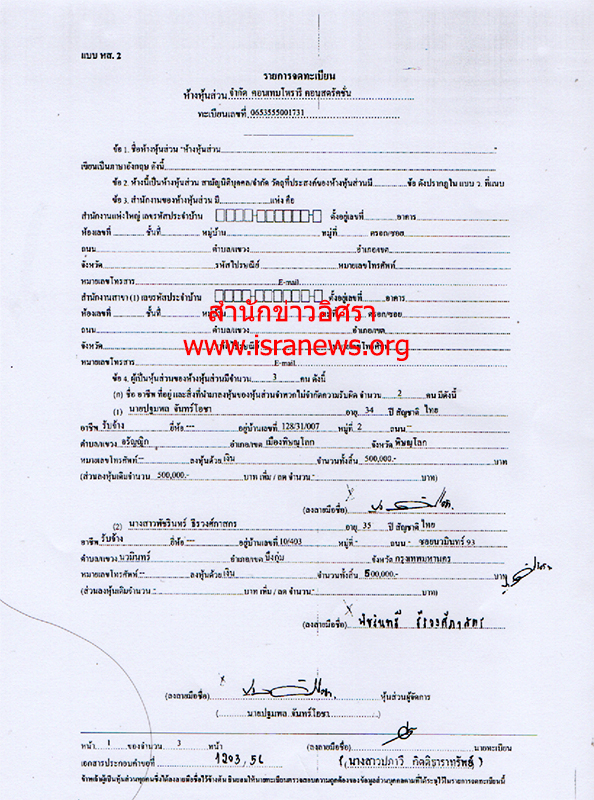 แบบ หส. 2
รายการจดทะเบียน
ห้างหุ้นส่วน จำกัด คอนเทมโพรารี คอนสตรัคชั่น
ทะเบียนเลขที่ 0653555001731
ข้อ 1. ชื่อห้างหุ้นส่วน "ห้างหุ้นส่วน"
เขียนเป็นภาษาอังกฤษ ดังนี้
ข้อ 2. ห้างนี้เป็นห้างหุ้นส่วน สามัญนิติบุคคล/จำกัด วัตถุที่ประสงค์ของห้างหุ้นส่วนมี ข้อ ดังปรากฏใน แบบ ว. ที่แนบ
ข้อ 3. สำนักงานของห้างหุ้นส่วน มี แห่ง คือ
สำนักงานแห่งใหญ่ เลขรหัสประจำบ้าน ตั้งอยู่เลขที่ อาคาร
ห้องเลขที่ ชั้นที่ หมู่บ้าน หมู่ที่ ตรอก/ซอย
ถนน ตำบล/แขวง อำเภอ/เขต
จังหวัด รหัสไปรษณีย์ หมายเลขโทรศัพท์
หมายเลขโทรสาร E-mail
สำนักงานสาขา (1) เลขรหัสประจำบ้าน ตั้งอยู่เลขที่ อาคาร
สำนักข่าวอิศรา
ห้องเลขที่ ชั้นที่ ตรอก/ซอย
ถนน ตำบล/แขวง อำเภอ/เขต
www.isranews.org
จังหวัด
หมายเลขโทรสาร E-mail
ข้อ 4. ผู้เป็นหุ้นส่วนของห้างหุ้นส่วนมีจำนวน 3 คน ดังนี้
(ก) ชื่อ อาชีพ ที่อยู่ และสิ่งที่นำมาลงหุ้นของหุ้นส่วนจำพวกไม่จำกัดความรับผิด จำนวน 2 คน มีดังนี้
(1) นายปฐมพล จันทร์โอชา อายุ 34 ปี สัญชาติ ไทย
อาชีพ รับจ้าง ยี่ห้อ --- อยู่บ้านเลขที่ 128/31/007 หมู่ที่ 2 ถนน -
ตำบล/แขวง อรัญญิก อำเภอ/เขต เมืองพิษณุโลก จังหวัด พิษณุโลก
หมายเลขโทรศัพท์ -- ลงหุ้นด้วย เงิน จำนวนทั้งสิ้น 500,000.- บาท
(ส่วนลงหุ้นเดิมจำนวน 500,000.- บาท เพิ่ม / ลด จำนวน - บาท)
(ลงลายมือชื่อ)
(2) นางสาวพัชรินทร์ ธีรวงศ์ภาสกร อายุ 35 ปี สัญชาติ ไทย
อาชีพ รับจ้าง ยี่ห้อ --- อยู่บ้านเลขที่ 10/403 หมู่ที่ - ถนน ซอยนวมินทร์ 93
ตำบล/แขวง นวมินทร์ อำเภอ/เขต บึงกุ่ม จังหวัด กรุงเทพมหานคร
หมายเลขโทรศัพท์ -- ลงหุ้นด้วย เงิน จำนวนทั้งสิ้น 500,000.- บาท
(ส่วนลงหุ้นเดิมจำนวน - บาท เพิ่ม / ลด จำนวน - บาท)
(ลงลายมือชื่อ)
(ลงลายมือชื่อ) หุ้นส่วนผู้จัดการ
( นายปฐมพล จันทร์โอชา )
หน้า 1 ของจำนวน 3 หน้า (ลงลายมือชื่อ) นายทะเบียน
เอกสารประกอบคำขอที่ 1203,56 ( นางสาวปภาวี กิตติธาราทรัพย์ )
ข้าพเจ้าผู้เป็นหุ้นส่วนทุกคนซึ่งได้ลงลายมือชื่อไว้ข้างต้น ยินยอมให้นายทะเบียนตรวจสอบความถูกต้องของข้อมูลส่วนบุคคลตามที่ได้ระบุไว้ในรายการจดทะเบียนนี้